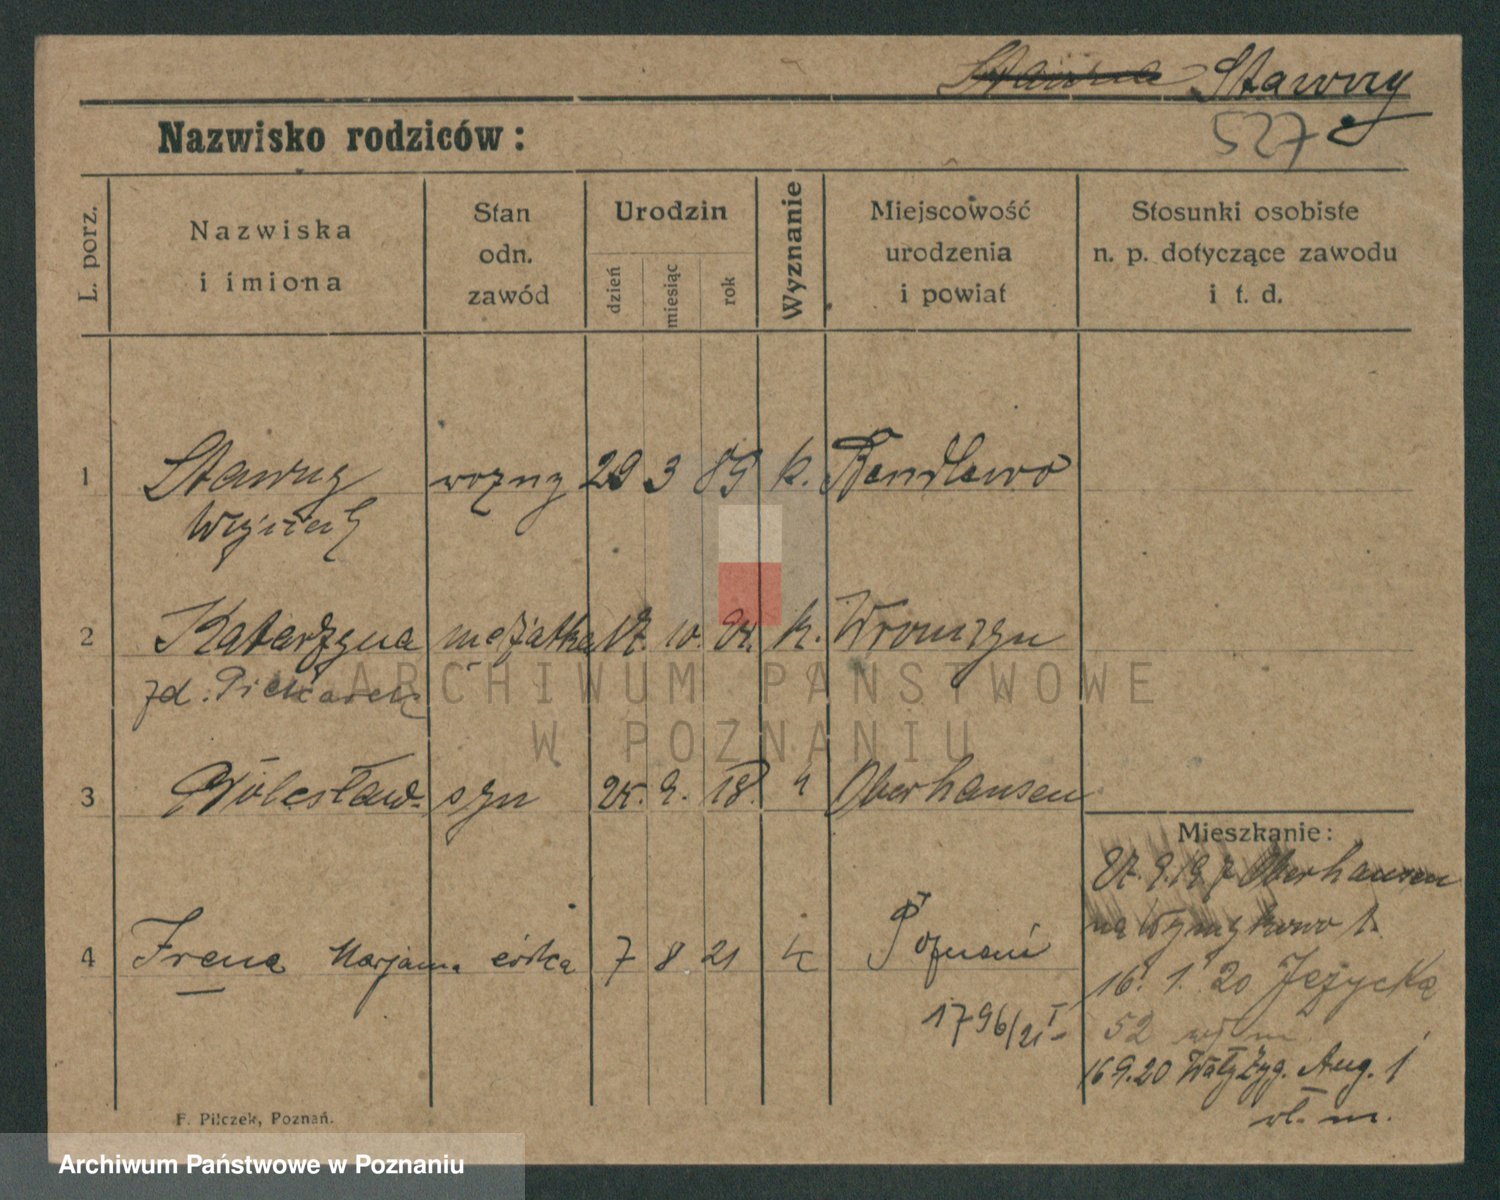 Stawny
527
Nazwisko rodziców:
L. porz.
Nazwiska
i imiona
Stan
odn.
zawód
Urodzin
dzień
miesiąc
rok
Wyznanie
Miejscowość
urodzenia
i powiat
Stosunki osobiste
n. p. dotyczące zawodu
i t. d.
1 Stawny woźny 29 3 89 k.
Wojciech
2 Katarzyna mężatka 17. 10. k. Wronczyn
zd. Piekarek
3 Bolesław syn 25. 9. 18. k Oberhausen
Mieszkanie:
Oberhausen
na
4 Irena Marjanna córka 7 8 21 k Poznań
16. 1. 20 Jeżycka
1796/21 I
52 wł. m.
16 9.20 Wały Zyg. Aug. 1
wł. m.
F. Pilczek, Poznań.
ARCHIWUM PAŃSTWOWE
W POZNANIU
Archiwum Państwowe w Poznaniu